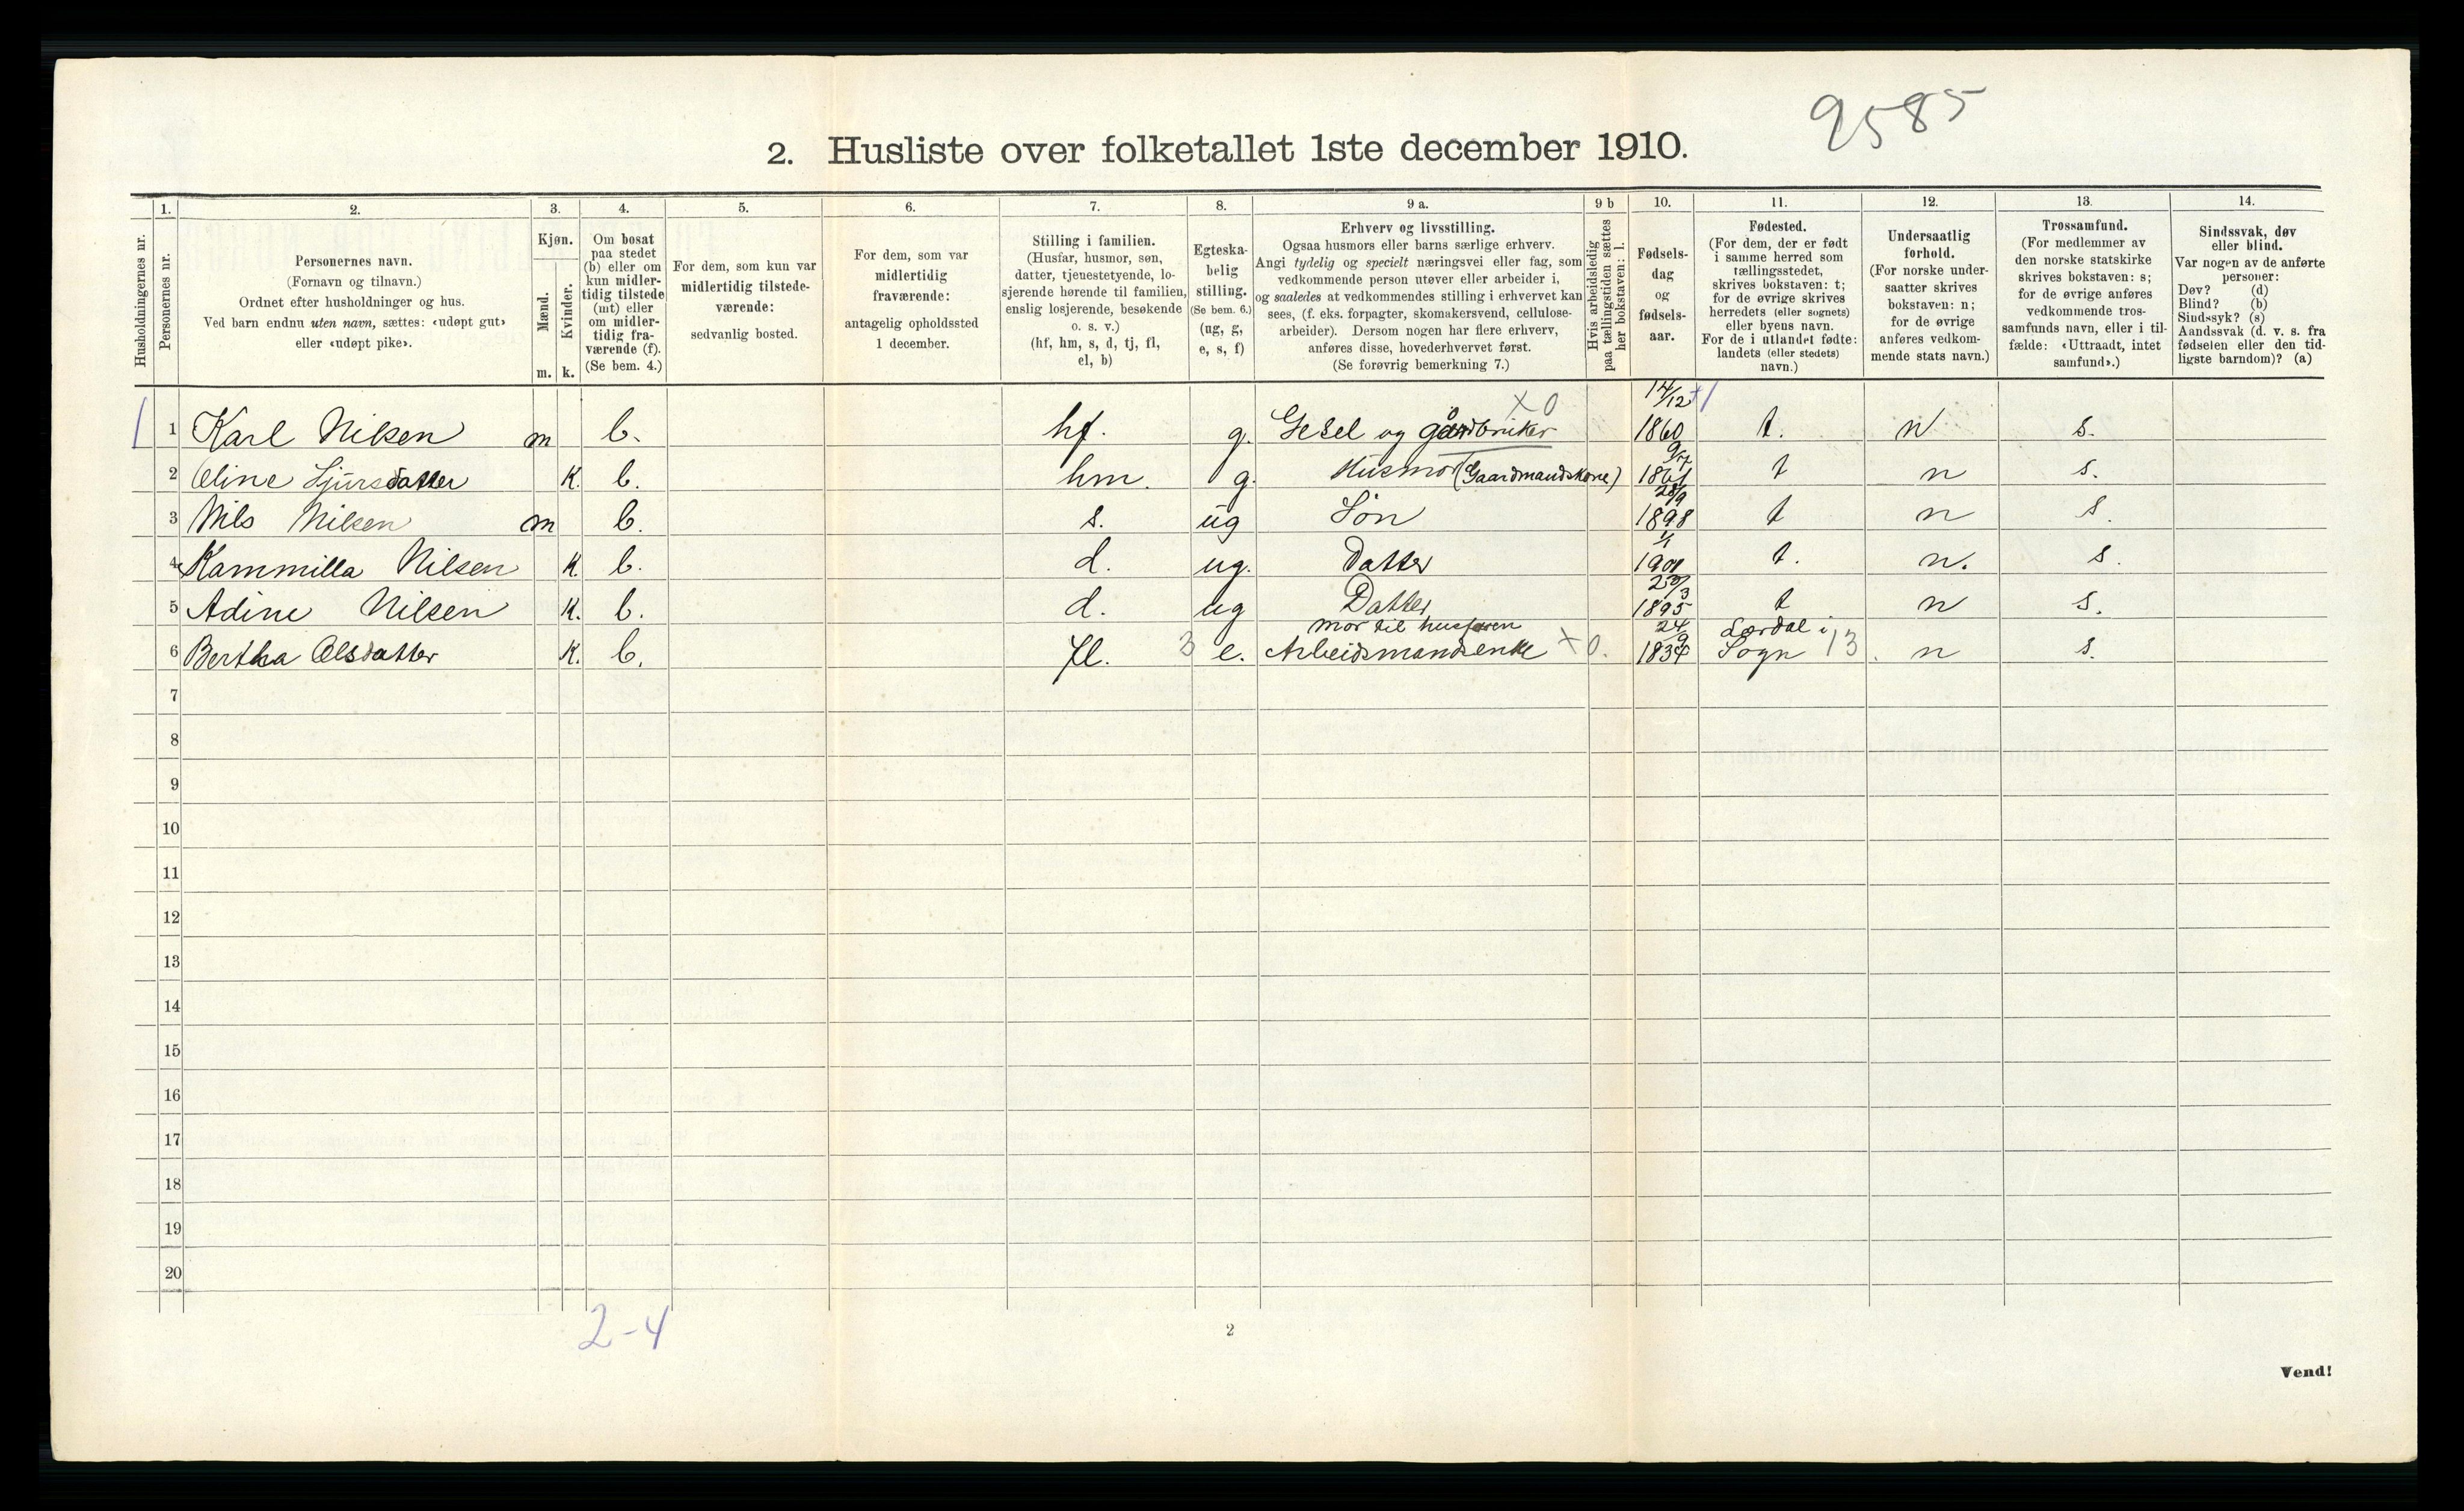 9585
2. Husliste over folketallet 1ste december 1910.
Husholdningernes nr.
1.
Personernes nr.
2.
Personernes navn.
(Fornavn og tilnavn.)
Ordnet efter husholdninger og hus.
Ved barn endnu uten navn, sættes: «udøpt gut»
eller «udøpt pike».
3.
Kjøn.
Mænd.
Kvinder.
m. k.
4.
Om bosat
paa stedet
(b) eller om
kun midler-
tidig tilstede
(mt) eller
om midler-
tidig fra-
værende (f).
(Se bem. 4.)
5.
For dem, som kun var
midlertidig tilstede-
værende:
sedvanlig bosted.
6.
For dem, som var
midlertidig
fraværende:
antagelig opholdssted
1 december.
7.
Stilling i familien.
(Husfar, husmor, søn,
datter, tjenestetyende, lo-
sjerende hørende til familien,
enslig losjerende, besøkende
o. s. v.)
(hf, hm, s, d, tj, fl,
el, b)
8.
Egteska-
belig
stilling.
(Se bem. 6.)
(ug, g,
e, s, f)
9 a.
Erhverv og livsstilling.
Ogsaa husmors eller barns særlige erhverv.
Angi tydelig og specielt næringsvei eller fag, som
vedkommende person utøver eller arbeider i,
og saaledes at vedkommendes stilling i erhvervet kan
sees, (f. eks. forpagter, skomakersvend, cellulose-
arbeider). Dersom nogen har flere erhverv,
anføres disse, hovederhvervet først.
(Se forøvrig bemerkning 7.)
9 b
Hvis arbeidsledig
paa tællingstiden sættes
her bokstaven: l.
10.
Fødsels-
dag
og
fødsels-
aar.
11.
Fødested.
(For dem, der er født
i samme herred som
tællingsstedet,
skrives bokstaven: t;
for de øvrige skrives
herredets (eller sognets)
eller byens navn.
For de i utlandet fødte:
landets (eller stedets)
navn.)
12.
Undersaatlig
forhold.
(For norske under-
saatter skrives
bokstaven: n;
for de øvrige
anføres vedkom-
mende stats navn.)
13.
Trossamfund.
(For medlemmer av
den norske statskirke
skrives bokstaven: s;
for de øvrige anføres
vedkommende tros-
samfunds navn, eller i til-
fælde: «Uttraadt, intet
samfund».)
14.
Sindssvak, døv
eller blind.
Var nogen av de anførte
personer:
Døv? (d)
Blind? (b)
Sindssyk? (s)
Aandssvak (d. v. s. fra
fødselen eller den tid-
ligste barndom)? (a)
x0 14/12
1 1 Karl Nilsen m b. hf. g. og gårdbruker 1860 t. n s.
2 Oline Sjursdatter K. b. hm. g. Husmor (Gaardmandskone) t n s.
28/9
3 Nils Nilsen m b. s. ug Søn 1898 t n s.
1/1
4 Kammilla Nilsen K. b. d. ug. Datter t. n. s.
5 Adine Nilsen K. b. d. ug Datter 1895 t n s.
mor til husfaren 24/9 Lærdal i
6 Bertha Olsdatter K. b. fl. 3 e. Arbeidsmandsenke x0. Sogn 13. n s.
7
8
9
10
11
12
13
14
15
16
17
18
19
20
2-4
2
Vend!